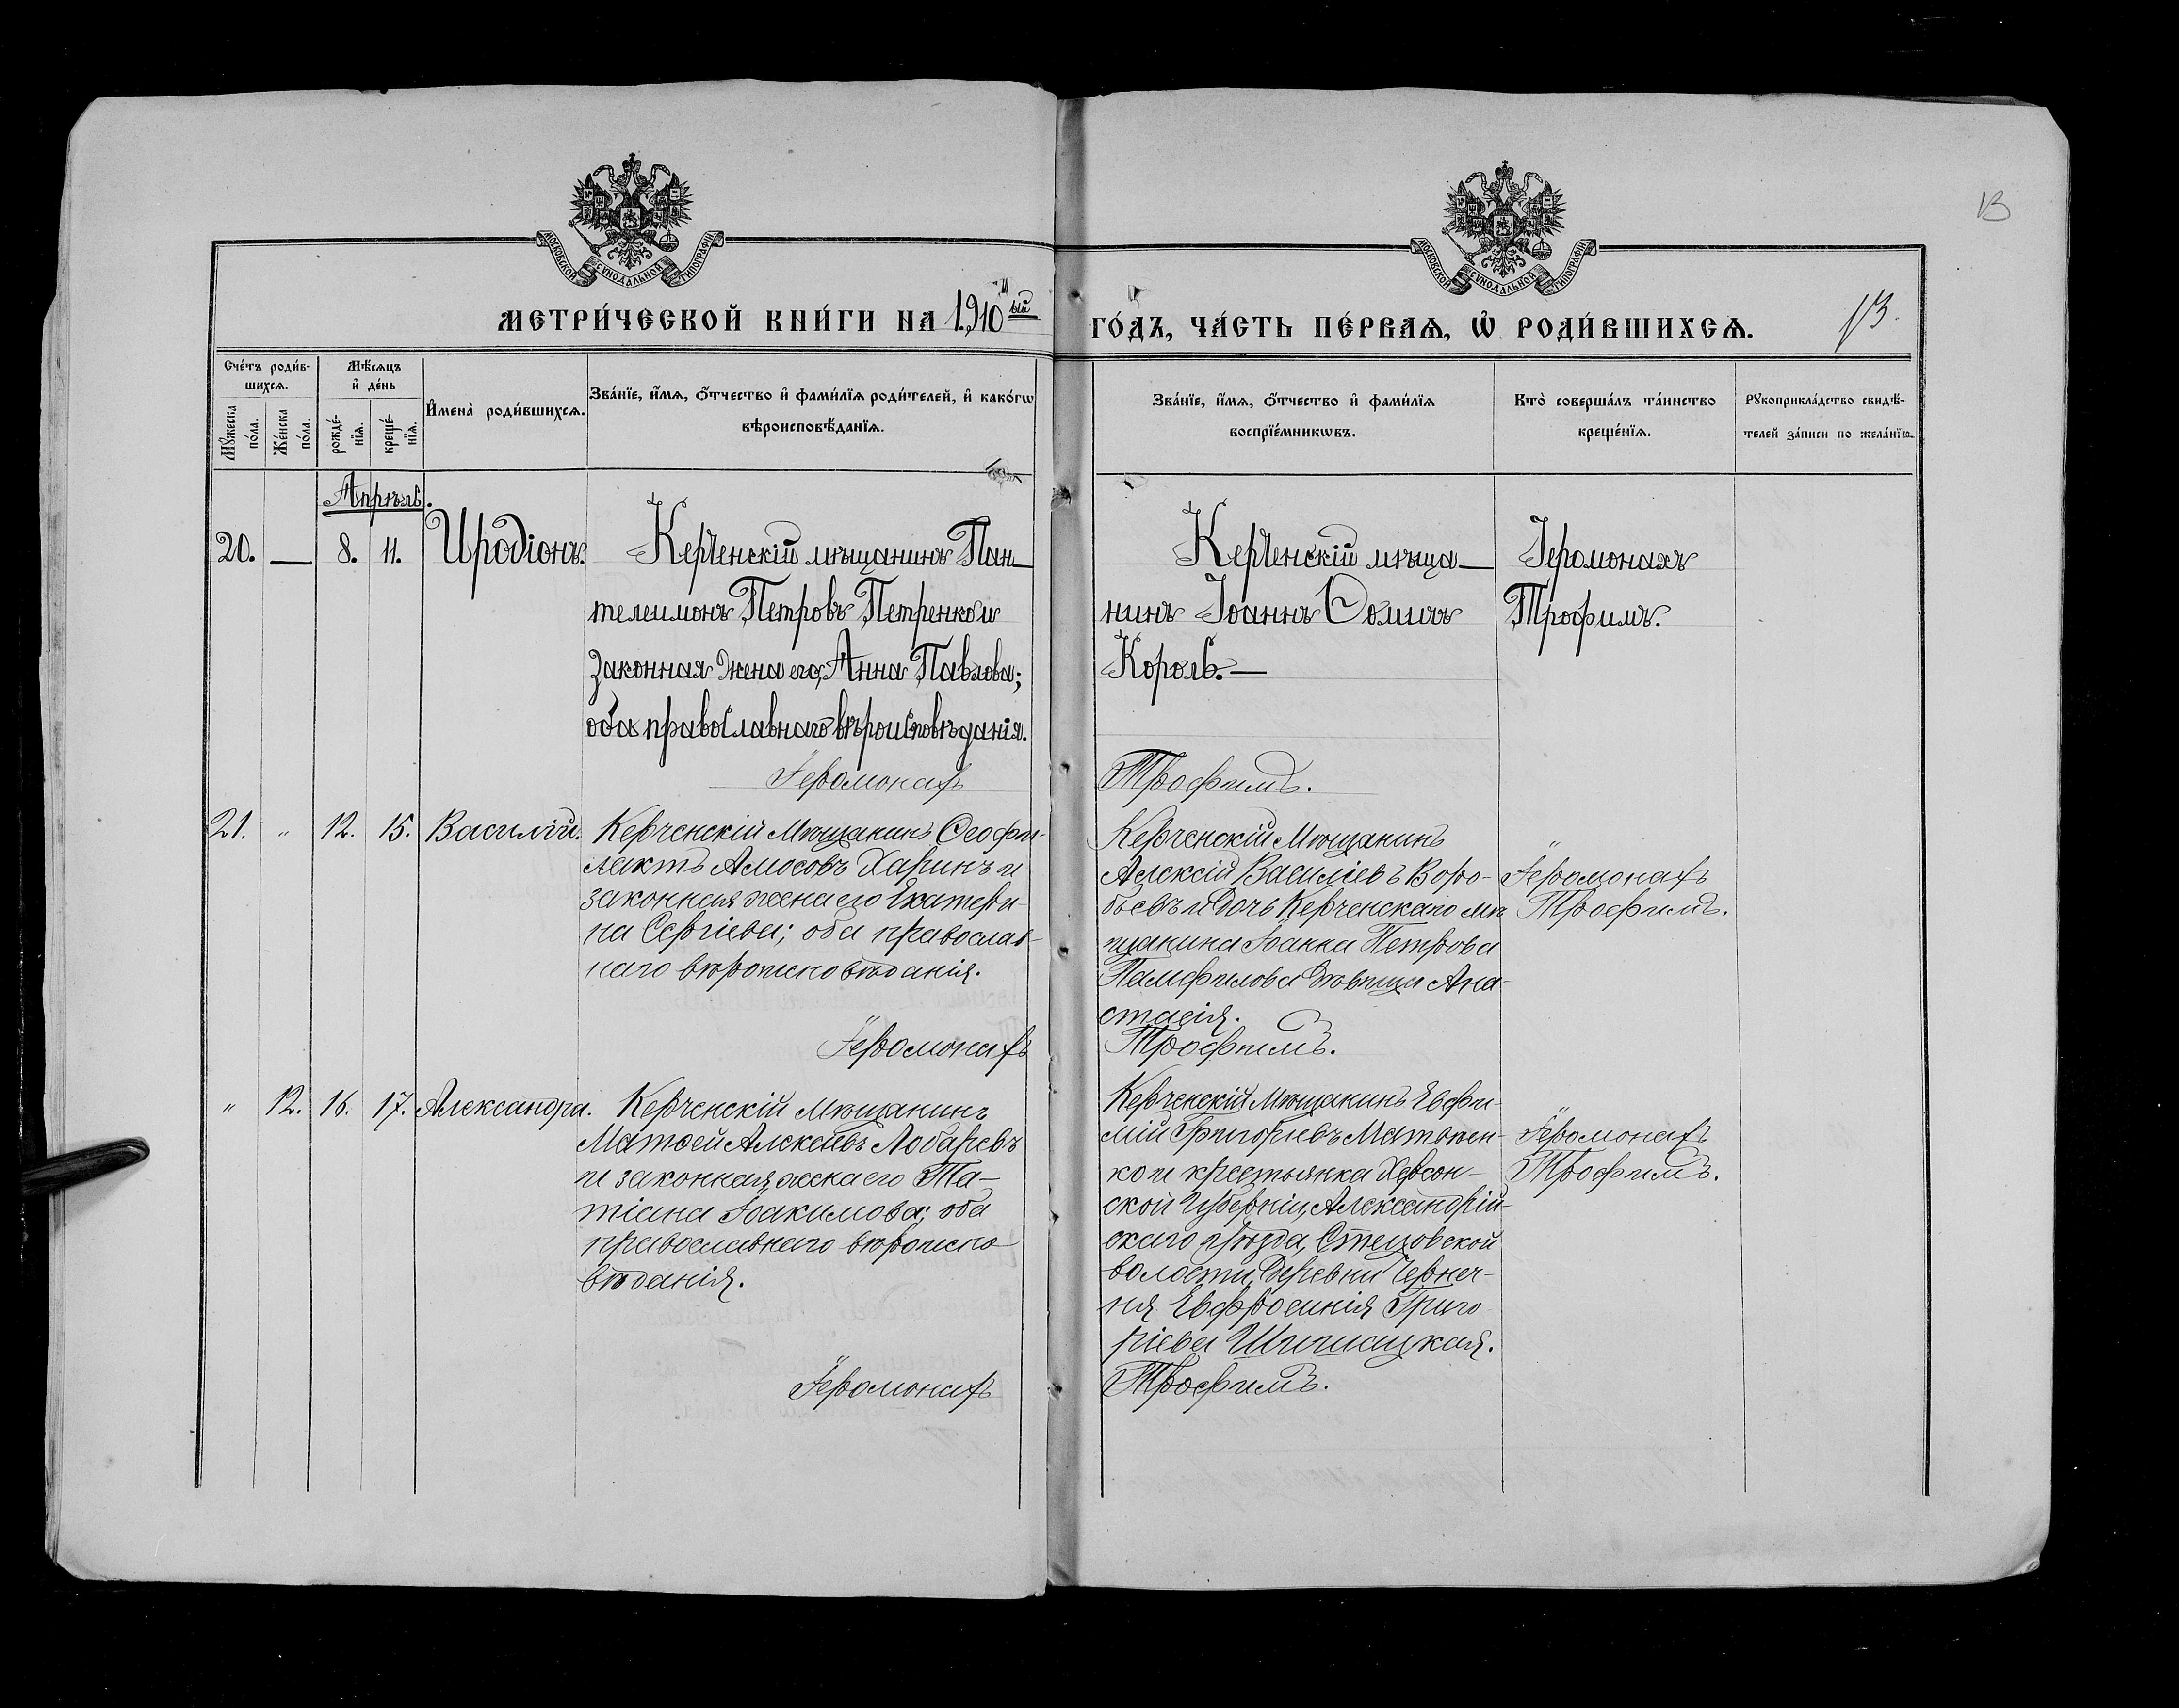 13
МОСКОВСКОЙ СУНОДАЛЬНОЙ ТИПОГРАФІИ
МОСКОВСКОЙ СУНОДАЛЬНОЙ ТИПОГРАФІИ
МЕТРИ́ЧЕСКОЙ КНИ́ГИ НА 1910ый ГО́ДЪ, ЧА́СТЬ ПЕ́РВАѦ, Ѡ҆ РОДИ́ВШИХСѦ.
13.
Сче́тъ роди́в-
шихсѧ.
Мꙋ́жеска по́ла.
Же́нска по́ла.
Мѣ́сѧцъ
и҆ де́нь
рожде́-
нїѧ.
креще́-
нїѧ.
И҆мена̀ роди́вшихсѧ.
Зва́нїе, и҆́мѧ, ѻ҆́тчество и҆ фами́лїѧ роди́телей, и҆ како́гѡ
вѣроисповѣ́данїѧ.
Зва́нїе, и҆́мѧ, ѻ҆́тчество и҆ фами́лїѧ
воспрїе́мникѡвъ.
Кто̀ соверша́лъ та́инство
креще́нїѧ.
Рꙋкоприкла́дство свидѣ́-
телей за́писи по жела́нїю.
Апрѣль.
20. — 8. 11. Иродіонъ.
Керченскій мѣщанинъ Пан-
телеимонъ Петровъ Петренко и
законная жена его, Анна Павлова;
оба православнаго вѣроисповѣданія.
Керченскій мѣща-
нинъ Іоаннъ Ѳомичъ
Король.—
Іеромонахъ
Трофимъ.
Іеромонахъ Трофимъ.
21. " 12. 15. Василій.
Керченскій Мѣщанинъ Ѳеофи-
лактъ Амосовъ Харинъ и
законная жена его Екатери-
на Сергіева; оба православ-
наго вѣроисповѣданія.
Керченскій Мѣщанинъ
Алексій Василіевъ Воро-
бьевъ и дочь Керченскаго мѣ
щанина Іоанна Петрова
Памфилова дѣвица Ана-
стасія.
Іеромонахъ
Трофимъ.
Іеромонахъ Трофимъ.
" 12. 16. 17. Александра.
Керченскій Мѣщанинъ
Матѳей Алексѣевъ Лобаревъ
и законная жена его Та-
тіана Іоакимова; оба
православнаго вѣроиспо-
вѣданія.
Керченскій Мѣщанинъ Евфи-
мій Григорьевъ Матвѣен-
ко и крестьянка Херсон-
ской Губерніи, Александрій-
скаго уѣзда, Стецовской
волости, Деревни Чернеч-
ня Евфросинія Григо
ріева Шишацкая.
Іеромонахъ
Трофимъ.
Іеромонахъ Трофимъ.